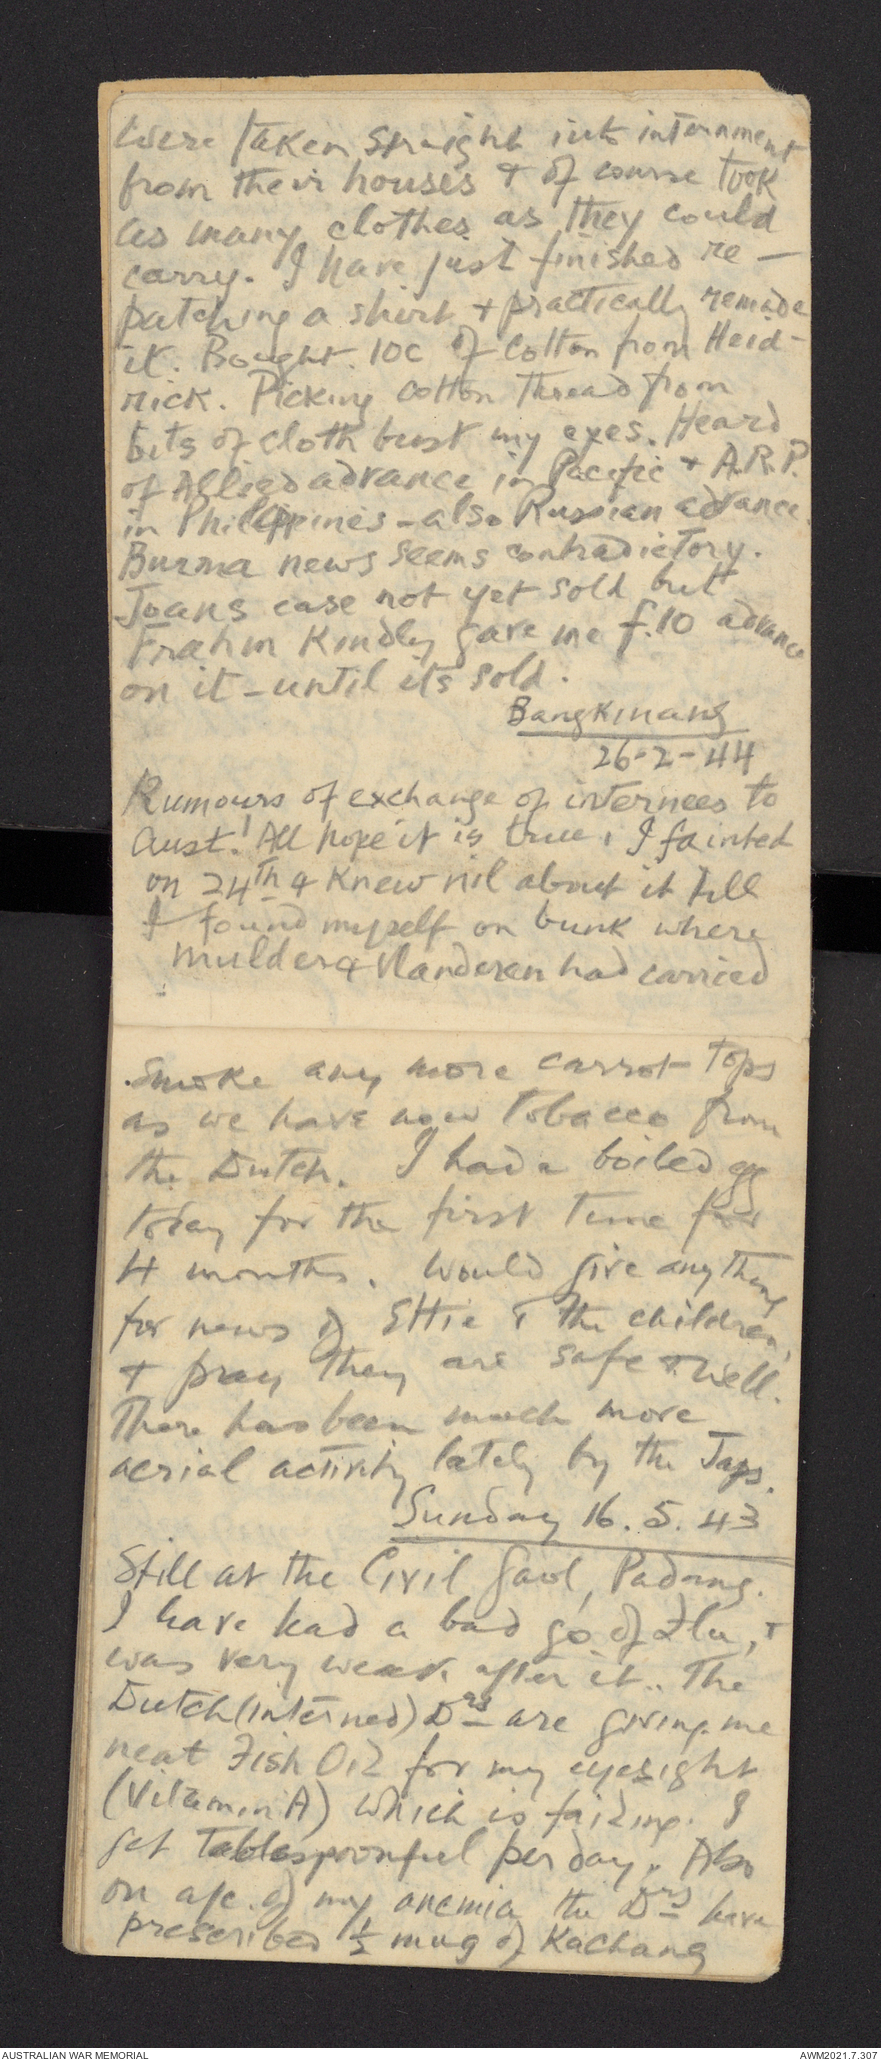 were taken straight into internment
from their houses & of course took
as many clothes as they could
carry. I have just finished re-
patching a shirt & practically remade
it. Bought 10c of cotton from Heid-
rick. Picking cotton thread from
bits of cloth bust my eyes. Heard
of Allied advance in Pacific & A.R.P.
in Philippines - also Russian advance.
Burma news seems contradictory.
Joans case not yet sold but
Frahm kindly gave me f.10 advance
on it - until its sold.
Bangkinang
26-2-44
Rumours of exchange of internees to
Aust! All hope it is true. I fainted
on 24th & knew nil about it till
I found myself on bunk where
Mulder & Vlanderen had carried
smoke any more carrot tops
as we have now tobacco from
the Dutch. I had a boiled egg
today for the first time for
4 months. Would give anything
for news of Ettie & the children,
& pray they are safe & well.
There has been much more
aerial activity lately by the Japs.
Sunday 16.5.43
Still at the Civil Gaol, Padang.
I have had a bad go of Flu, &
was very weak after it.. The
Dutch (interned) Drs are giving me
neat Fish Oil for my eyesight
(Vitamin A) which is failing. I
get tablespoonful per day. Also
on a/c of my anemia the Drs have
prescribed ½ mug of Kachang
AUSTRALIAN WAR MEMORIAL
AWM2021.7.307